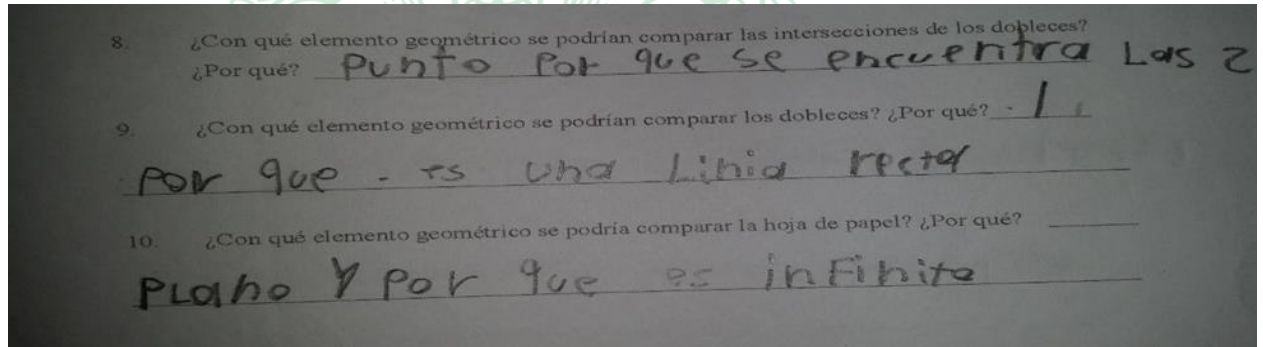 8. ¿Con qué elemento geométrico se podrían comparar las intersecciones de los dobleces?
¿Por qué? Punto Por que se encuentra Las 2
9. ¿Con qué elemento geométrico se podrían comparar los dobleces? ¿Por qué?
por que - es una Linia recta
10. ¿Con qué elemento geométrico se podría comparar la hoja de papel? ¿Por qué?
PLano Y Por que es inFinito